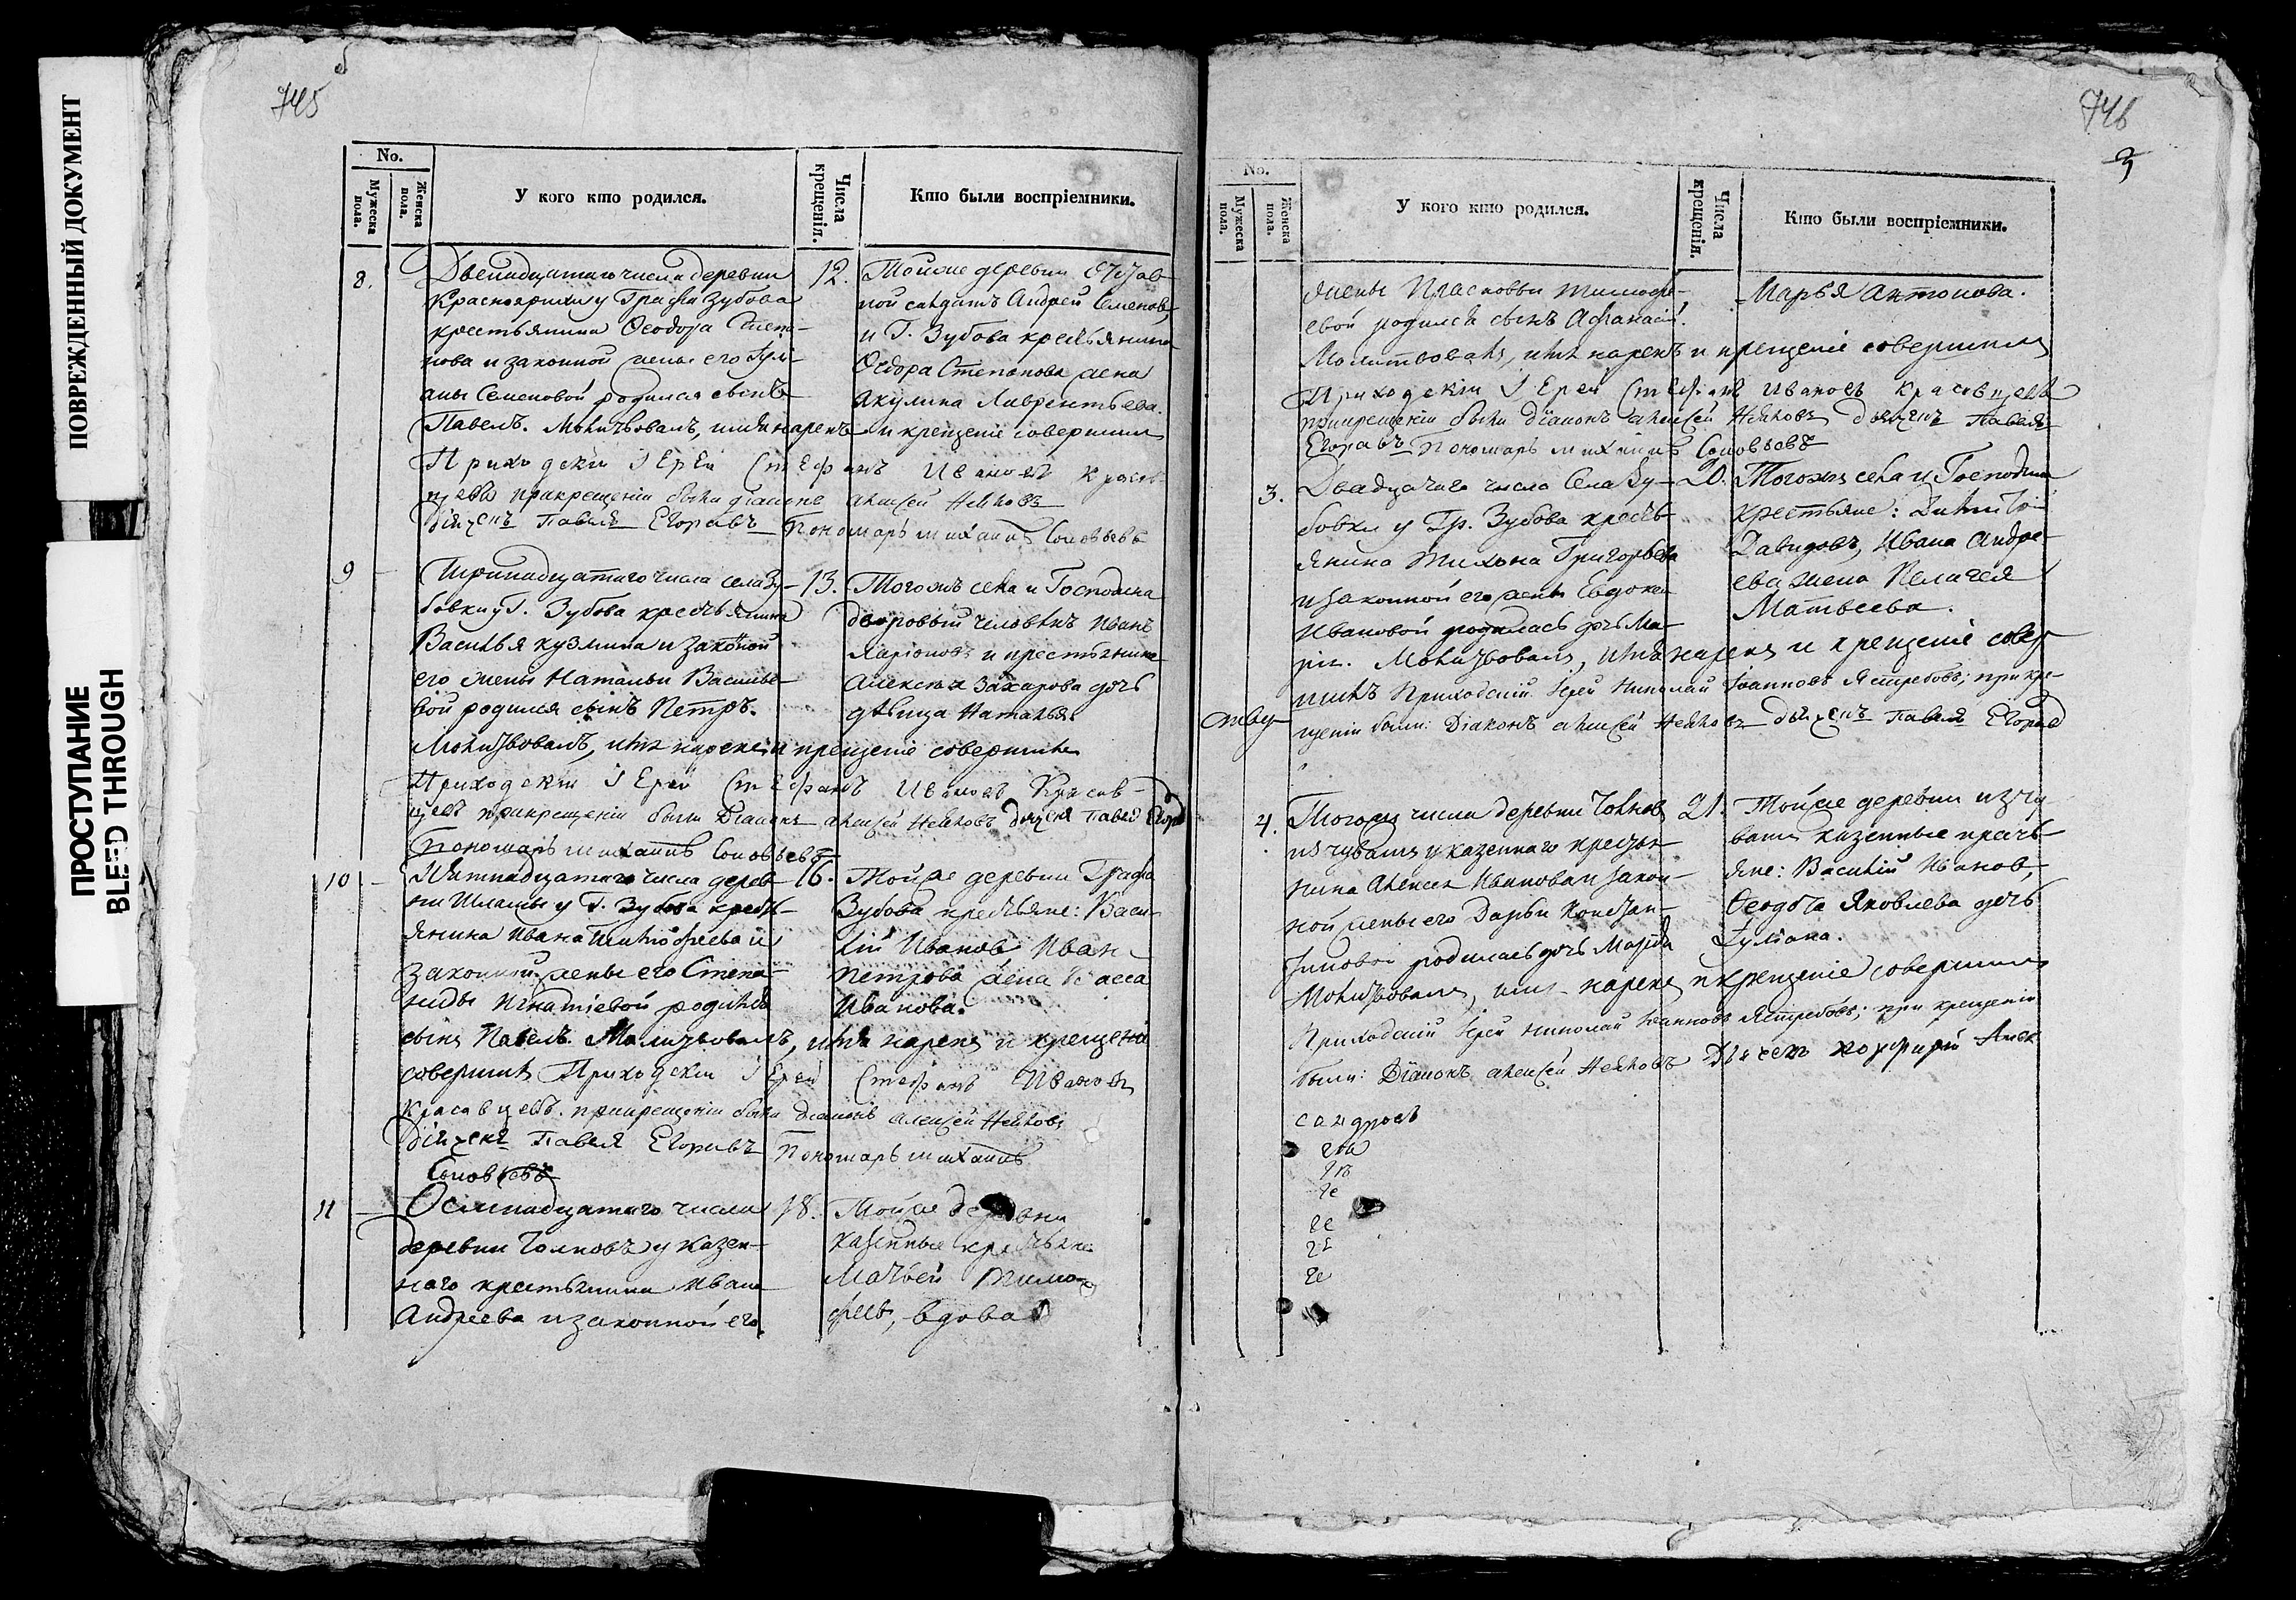 ПОВРЕЖДЕННЫЙ ДОКУМЕНТ
ПРОСТУПАНИЕ
BLEED THROUGH
745
No.
Мужеска пола.
Женска пола.
У кого кто родился.
Числа крещенія.
Кто были воспріемники.
8.
Двенадцатаго числа деревни
Краснояриху Графа Зубова
крестьянина Ѳеодора Степа-
нова и законной жены его Іулі-
аны Семеновой родился сынъ
Павелъ. Молитвовалъ, имя нарекъ и крещеніе совершилъ
Приходскіи Іерей Стефанъ Ивановъ Красав-
цевъ прикрещеніи были діаконъ Алексей
дьячекъ Павелъ Егоровъ Пономарь Михаилъ Соловьевъ
12.
Тойже деревни
ной салдатъ Андрей Семенов,
и Г. Зубова крестьянина
Ѳедора Степанова жена
Акулина Лаврентьева.
9
Тринадцатаго числа села Зу-
бовки у Г. Зубова крестьянина
Василья Кузмина и законой
его жены Натальи Василье-
вой родился сынъ Петръ.
Молитвовалъ, имя нарекъ и крещеніе совершилъ
Приходскіи Іерей Стефанъ Ивановъ Красав-
цевъ прикрещеніи были Діаконъ Алексей дьячекъ Павелъ Егоровъ
Пономарь Михаилъ Соловьевъ
13.
Тогожъ села и Господина
дворовый человѣкъ Иванъ
Ларіоновъ и крестьянина
Алексея Захарова дочь
дѣвица Наталья.
10
Пятнадцатаго числа дерев-
ни у Г. Зубова кресть-
янина Ивана Тимофеева и
законной жены его Степа-
ниды Игнатіевой родился
сынъ Павелъ. Молитвовалъ, имя нарекъ и крещеніе
совершилъ Приходскіи Іерей Стефанъ Ивановъ
Красавцевъ. прикрещеніи были діаконъ Алексей
Дьячекъ Павелъ Егоровъ Пономарь Михаилъ
Соловьевъ
16.
Тойже деревни Графа
Зубова крестьяне: Васи-
лій Иванов Иван
Петрова жена
Иванова.
11
Осмнадцатаго числа
деревни у казен-
наго крестьянина Ивана
Андреева и законной его
18.
Тойже деревни
казенные крестьяне
Матвей Тимо-
феев, вдова
746
3
No.
Мужеска пола.
Женска пола.
У кого кто родился.
Числа крещенія.
Кто были воспріемники.
жены Прасковьи Тимофе-
евой родился сынъ Афанасій.
Молитвовалъ, имя нарекъ и крещеніе совершилъ
Приходскіи Іерей Стефанъ Ивановъ Красавцевъ
прикрещеніи были діаконъ Алексей дьячекъ Павелъ
Егоровъ Пономарь Михаилъ Соловьевъ
Марья Антонова.
3.
Двадцатаго числа Села Зу-
бовки у Гр. Зубова кресть-
янина Тихона Григорьева
и законной его жены Евдокеи
Ивановой родилась дочь Ма-
рія. Молитвовалъ, имя нарекъ и крещеніе совер-
шилъ Приходскій Іерей Николай Іоанновъ Ястребовъ; при кре-
щеніи были: Діаконъ Алексей дьячекъ Павелъ Егоров
20.
Тогожъ села и Господина
крестьяне: Димитрій
Давидовъ, Ивана Андре-
ева жена Пелагея
Матвеева.
4.
Тогожъ числа деревни
изъ чувашъ у казеннаго крестья-
нина Алексея Иванова и закон-
ной жены его Дарьи Констан-
тиновой родилась дочь Марѳа
Молитвовалъ, имя нарекъ и крещеніе совершилъ
Приходскій Іерей Николай Іоанновъ Ястребовъ; при крещеніи
были: Діаконъ Алексей Дьячекъ Порфирій Алек
сандровъ
21.
Тойже деревни изъ чу-
вашъ казенные кресть-
яне: Василій Иванов,
Ѳеодота Яковлева дочь
Іуліана.